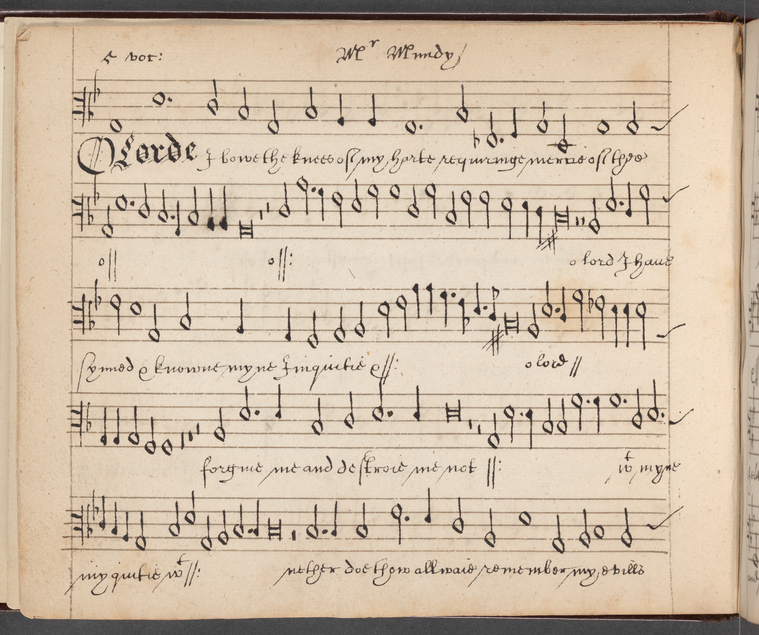 5 voc: Mr Mundy
O Lorde I bowe the knees off my harte requiringe mercie off thee
o || o ||: o lord I have
synned & knowne myne Iniquitie &||: o lord ||
forgive me and destroie me not ||: wt myne
inyquitie wt ||: nether doe thow allwaie remember my evills